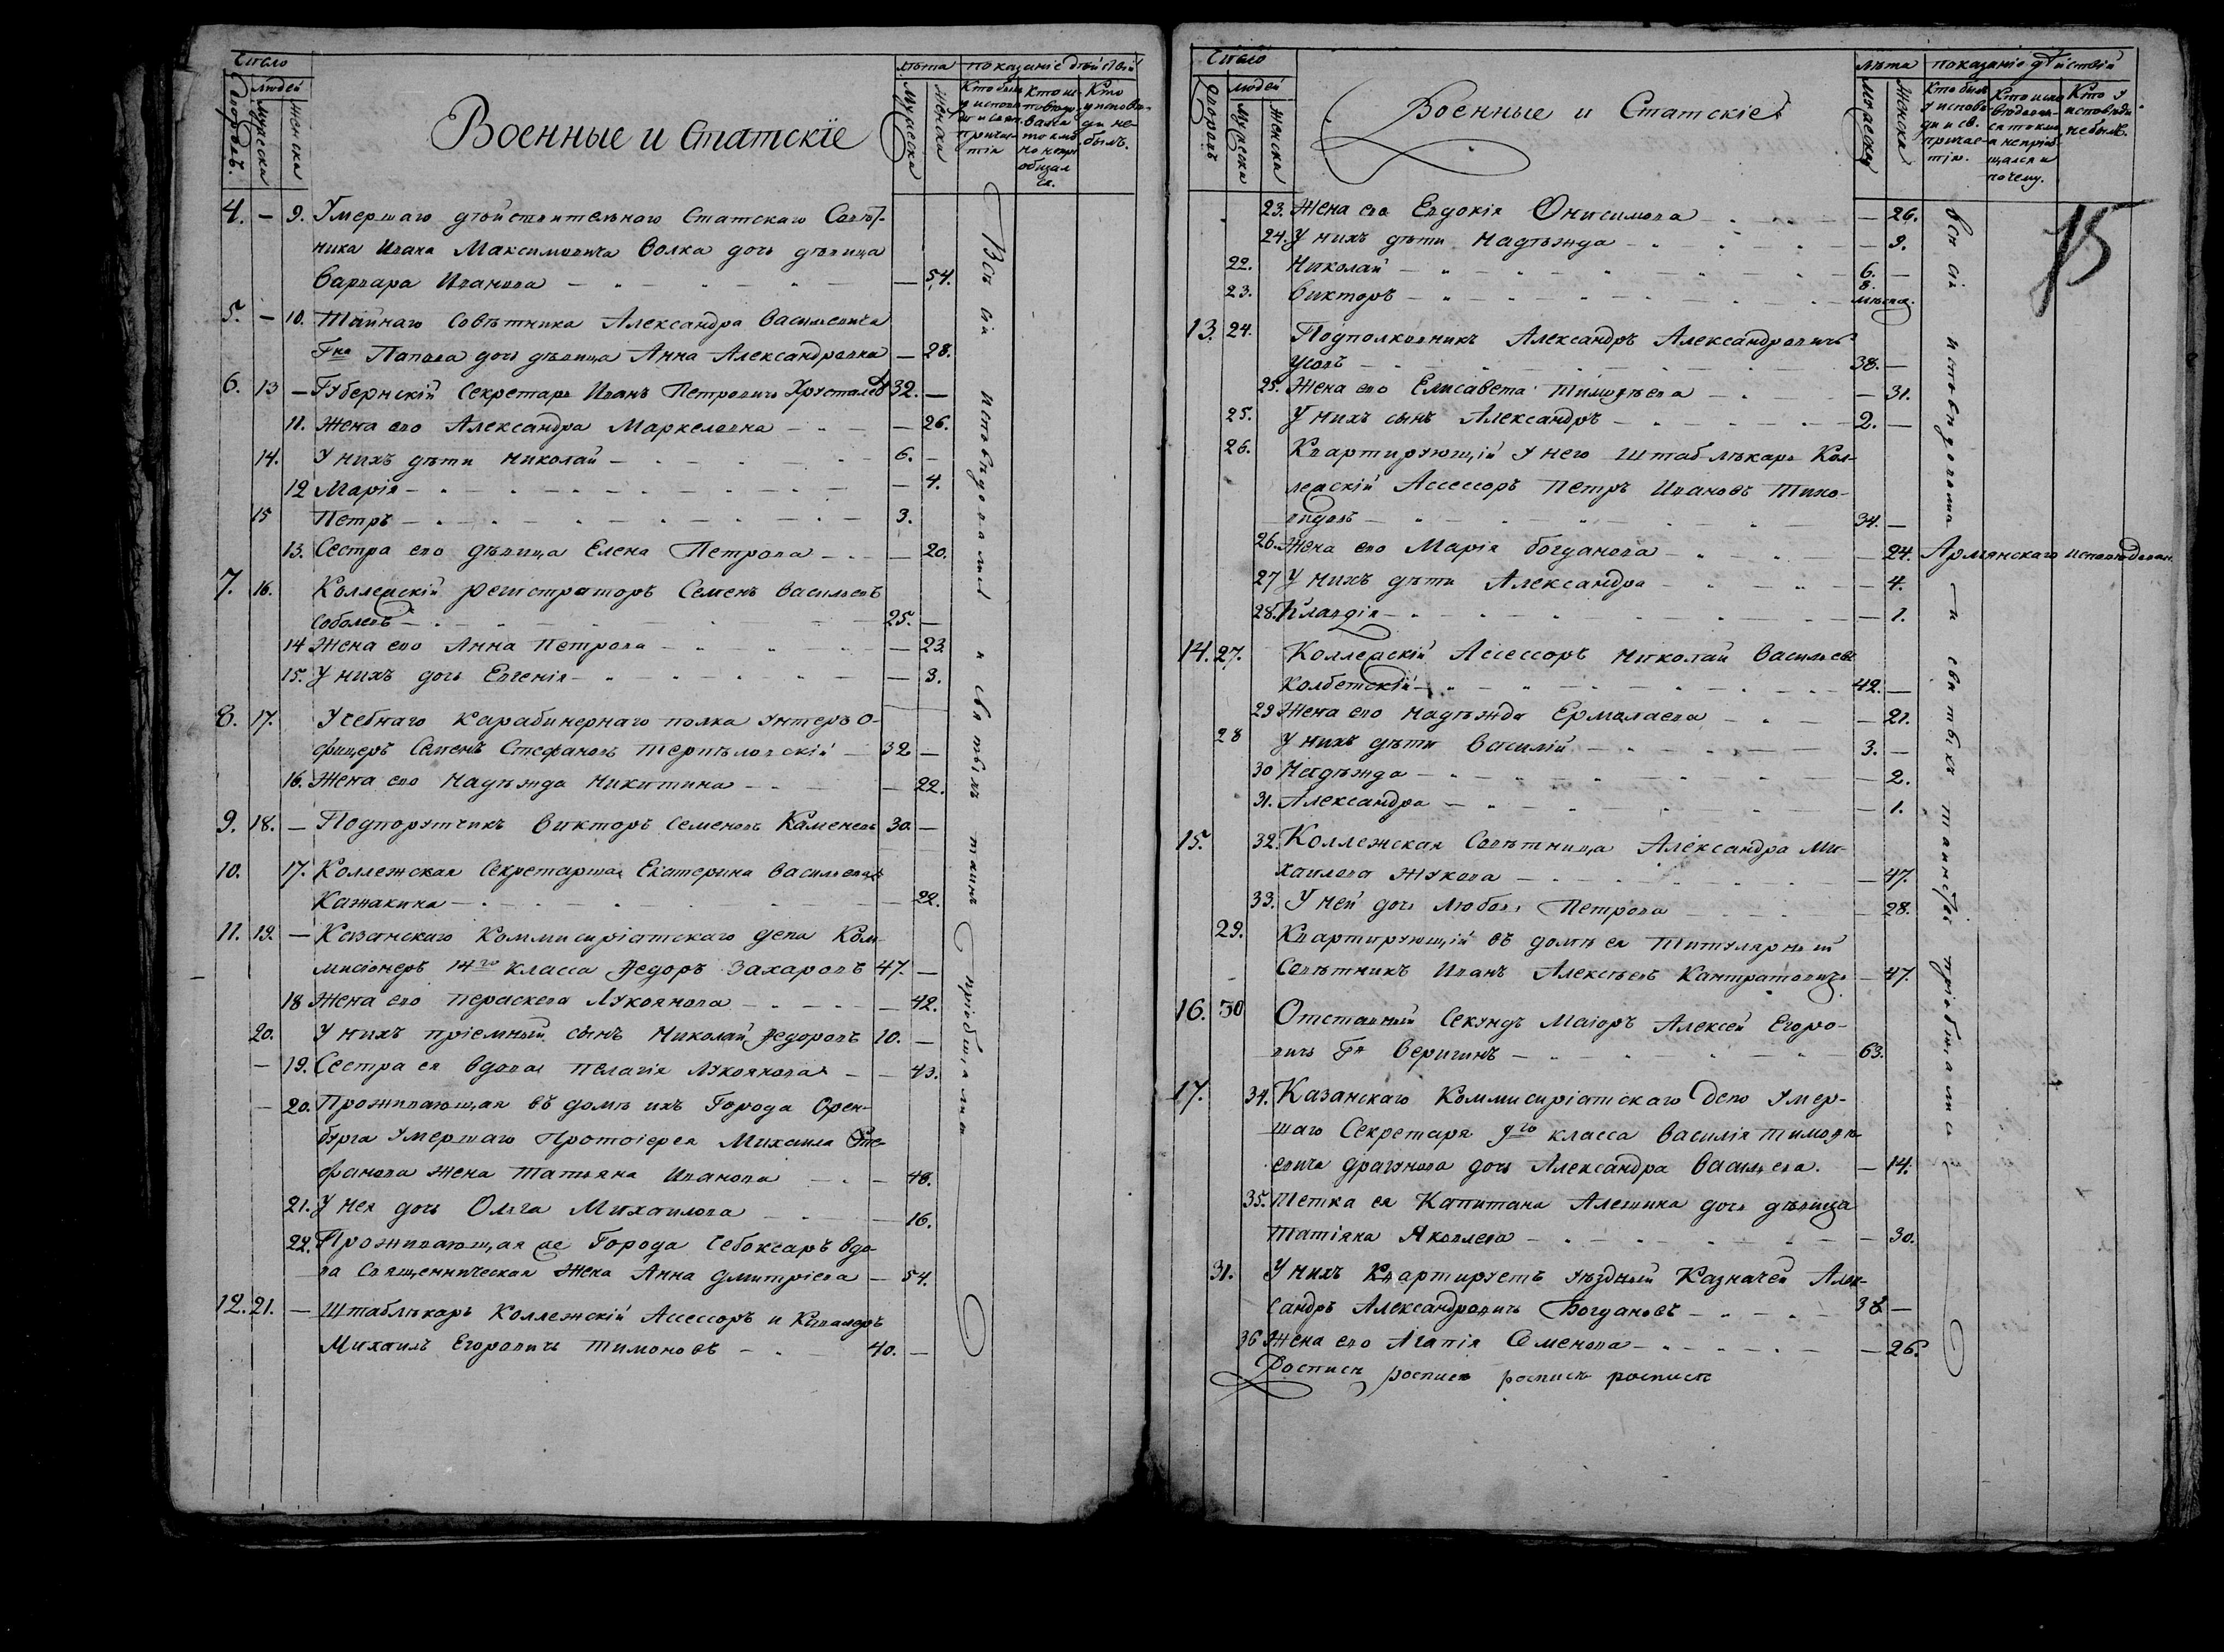 Число
людей
лѣта
показанiе дѣйствiй
дворовъ.
мужеска
женска
Военные и Статскiе
мужеска
женска
Кто былъ у исповѣди и свят. причастiя
Кто исповѣдовался токмо а не прiобщался.
Кто у исповѣди не былъ.
4. — 9. Умершаго дѣйствительнаго Статскаго Совѣт-
ника Ивана Максимовича Волка дочь дѣвица
Варвара Иванова — 54.
5. — 10. Тайнаго Совѣтника Александра Васильевича
Гна Попова дочь дѣвица Анна Александровна — 28.
6. 13 — Губернскiй Секретарь Иванъ Петровичъ Хрусталев 32. —
11. Жена его Александра Маркеловна — 26.
14. У нихъ дѣти Николай — 6. —
12 Марiя — 4.
15 Петръ — 3.
13. Сестра его дѣвица Елена Петрова — 20.
7. 16. Коллежскiй регистраторъ Семенъ Васильевъ
Соболевъ — 25. —
14 Жена его Анна Петрова — 23.
15. У нихъ дочь Евгенiя — 3.
8. 17. Учебнаго Карабинернаго полка унтеръ о-
фицеръ Семенъ Стефановъ Терпѣловскiй — 32 —
16. Жена его Надѣжда Никитина — 22.
9. 18. — Подпорутчикъ Викторъ Семеновъ Каменевъ 30. —
10. 17. Коллежская Секретарша Екатерина Васильева
Кажакина — 22.
11. 19. — Казанскаго Коммисирiатскаго депа Ком-
мисiонеръ 14го класса Ѳедоръ Захаровъ 47. —
18 Жена его Пераскева Лукоянова — 42.
20. У нихъ прiемный сынъ Николай Ѳедоровъ 10. —
— 19. Сестра ея вдова Пелагiя Лукоянова — 43.
— 20. Проживающая въ домѣ ихъ Города Орен-
бурга умершаго Протоiерея Михаила Сте-
фанова жена Татьяна Иванова — 48.
21. У нея дочь Ольга Михаилова — 16.
22. Проживающая же Города Чебоксаръ вдо-
ва Священническая жена Анна Дмитрiева — 54.
12. 21. — Штаблѣкарь Коллежскiй Ассессоръ и Кавалеръ
Михаилъ Егоровичъ Тимоновъ — 40. —
Всѣ сiи исповѣдовались и святыхъ таинъ прiобщались
Число
людей
лѣта
показанiе дѣйствiй
дворовъ
мужеска
женска
Военные и Статскiе
мужеска
женска
Кто былъ у исповѣди и св. причастiя.
Кто исповѣдовался токмо а не прiобщался и почему.
Кто у исповѣди не былъ.
15
23. Жена его Евдокiя Онисимова — 26.
24. У нихъ дѣти Надѣжда — 9.
22. Николай — 6. —
23. Викторъ — 8. мѣсяц.
13. 24. Подполковникъ Александръ Александровичъ
Усовъ — 38. —
25. Жена его Елисавета Тимоѳѣева — 31.
25. У нихъ сынъ Александръ — 2. —
26. Квартирующiй у него Штаб-лѣкарь Кол-
лежскiй Ассессоръ Петръ Ивановъ Тихо-
видовъ — 34. —
26. Жена его Марiя Богданова — 24. Армянскаго исповѣдован.
27 У нихъ дѣти Александра — 4.
28. Клавдiя — 1.
14. 27. Коллежскiй Ассессоръ Николай Васильевъ
Колбетскiй — 42. —
29 Жена его Надѣжда Ермолаева — 21.
28 У нихъ дѣти Василiй — 3. —
30 Надѣжда — 2.
31. Александра — 1.
15. 32. Коллежская Совѣтница Александра Ми-
хаилова Жукова — 47.
33. У ней дочь Любовь Петрова — 28.
29. Квартирующiй въ домѣ ея Титулярный
Совѣтникъ Иванъ Алексѣевъ Кантратовичъ — 47.
16. 30 Отставный Секундъ Маiоръ Алексей Егоро-
вичъ Гн Веригинъ — 63.
17. 34. Казанскаго Коммисирiатскаго Депо умер-
шаго Секретаря 9го класса Василiя Тимоѳѣ-
евича Драгунова дочь Александра Васильева. — 14.
35. Тетка ея Капитана Алешина дочь дѣвица
Татiяна Яковлева — 30.
31. У нихъ Квартируетъ уѣздный Казначей Алек-
сандръ Александровичъ Богдановъ — 38 —
36 Жена его Агапiя Семенова — 26.
Росписи росписи росписи росписи
Всѣ сiи исповѣдовались и святыхъ таинствъ прiобщались